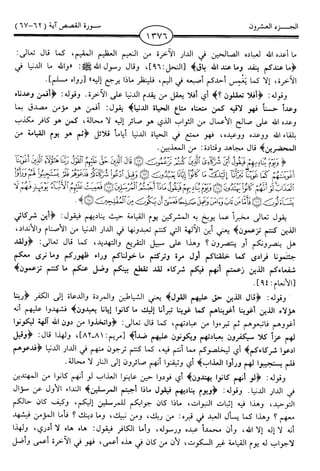 الجزء العشرون
١٣٧٦
سورة القصص آية (٦٢-٦٧)
ما أعده الله لعباده الصالحين في الدار الآخرة من النعيم العظيم المقيم، كما قال تعالى:
﴿ما عندكم ينفد وما عند الله باق﴾ [النحل:٩٦]، وقال رسول الله ﷺ: «والله ما الدنيا في
الآخرة، إلا كما يغمس أحدكم أصبعه في اليم، فلينظر ماذا يرجع إليه» [رواه مسلم].
وقوله: ﴿أفلا تعقلون ؟﴾ أي أفلا يعقل من يقدم الدنيا على الآخرة. وقوله: ﴿أفمن وعدناه
وعداً حسناً فهو لاقيه كمن متعناه متاع الحياة الدنيا﴾ يقول: أفمن هو مؤمن مصدق بما
وعده الله على صالح الأعمال من الثواب الذي هو صائر إليه لا محالة، كمن هو كافر مكذب
بلقاء الله ووعده ووعيده، فهو ممتع في الحياة الدنيا أياماً قلائل ﴿ثم هو يوم القيامة من
المحضرين﴾ قال مجاهد وقتادة: من المعذبين.
يقول تعالى مخبراً عما يوبخ به المشركين يوم القيامة حيث يناديهم فيقول: ﴿أين شركائي
الذين كنتم تزعمون﴾ يعني أين الآلهة التي كنتم تعبدونها في الدار الدنيا من الأصنام والأنداد،
هل ينصرونكم أو ينتصرون ؟ وهذا على سبيل التقريع والتهديد، كما قال تعالى: ﴿ولقد
جئتمونا فرادى كما خلقناكم أول مرة وتركتم ما خولناكم وراء ظهوركم وما نرى معكم
شفعاءكم الذين زعمتم أنهم فيكم شركاء لقد تقطع بينكم وضل عنكم ما كنتم تزعمون﴾
[الأنعام: ٩٤].
وقوله: ﴿قال الذين حق عليهم القول﴾ يعني الشياطين والمردة والدعاة إلى الكفر ﴿ربنا
هؤلاء الذين أغوينا أغويناهم كما غوينا تبرأنا إليك ما كانوا إيانا يعبدون﴾ فشهدوا عليهم أنه
أغووهم فاتبعوهم ثم تبرءوا من عبادتهم، كما قال تعالى: ﴿واتخذوا من دون الله آلهة ليكونوا
لهم عزاً كلا سيكفرون بعبادتهم ويكونون عليهم ضداً﴾ [مريم: ٨١-٨٢]، ولهذا قال: ﴿وقيل
ادعوا شركاءكم﴾ أي ليخلصوكم مما أنتم فيه، كما كنتم ترجون منهم في الدار الدنيا ﴿فدعوهم
فلم يستجيبوا لهم ورأوا العذاب﴾ أي وتيقنوا أنهم صائرون إلى النار لا محالة.
وقوله: ﴿لو أنهم كانوا يهتدون﴾ أي فودوا حين عاينوا العذاب لو أنهم كانوا من المهتدين
في الدار الدنيا. وقوله: ﴿ويوم يناديهم فيقول ماذا أجبتم المرسلين﴾ النداء الأول عن سؤال
التوحيد، وهذا فيه إثبات النبوات، ماذا كان جوابكم للمرسلين إليكم، وكيف كان حالكم
معهم ؟ وهذا كما يسأل العبد في قبره: من ربك، ومن نبيك، وما دينك ؟ فأما المؤمن فيشهد
أنه لا إله إلا الله، وأن محمداً عبده ورسوله، وأما الكافر فيقول: هاه هاه لا أدري، ولهذا
لا جواب له يوم القيامة غير السكوت، لأن من كان في هذه أعمى، فهو في الآخرة أعمى وأضل